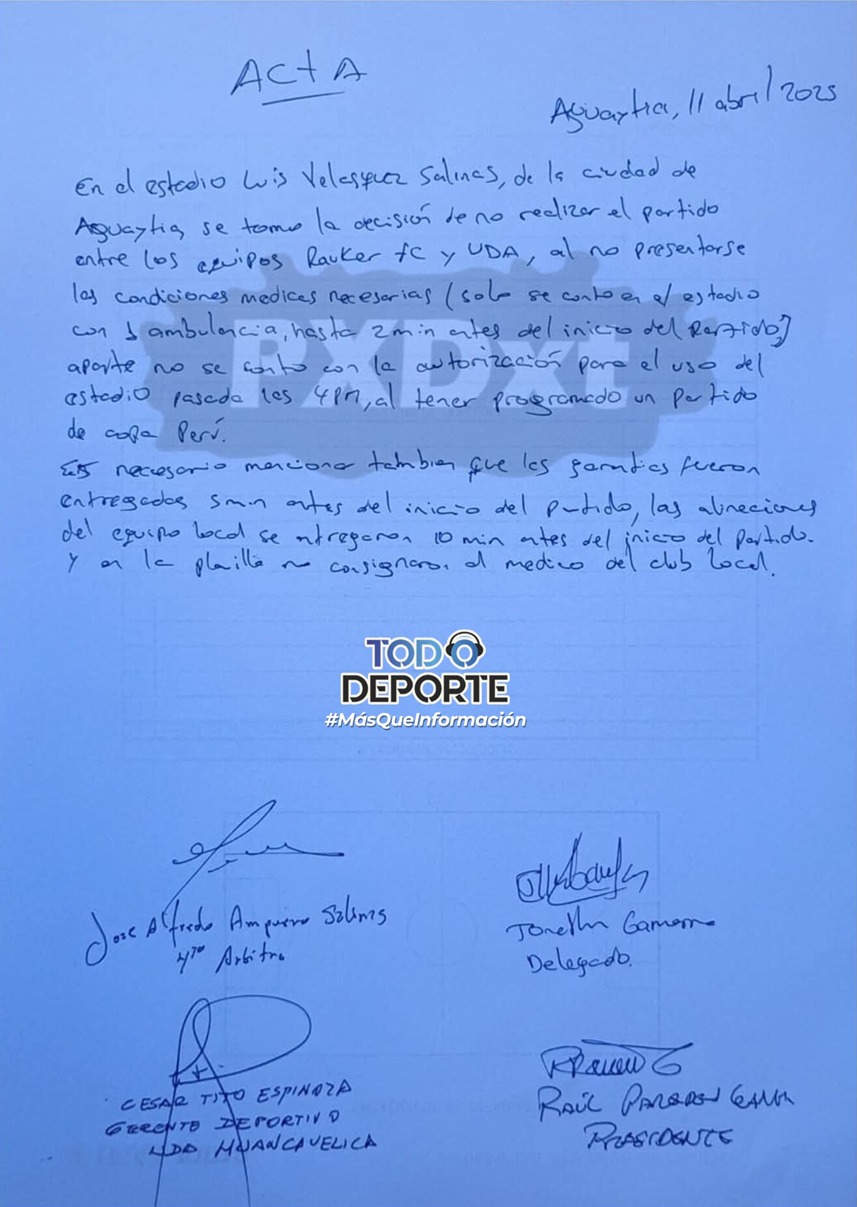 ACTA
Aguaytia, 11 abril 2025
En el estadio Luis Velasquez Salinas, de la ciudad de
Aguaytia, se tomo la decisión de no realizar el partido
entre los equipos Rauker fc y UDA, al no presentarse
las condiciones medicas necesarias (solo se conto en el estadio
con 1 ambulancia, hasta 2 min antes del inicio del Partido)
aparte no se conto con la autorización para el uso del
estadio pasada las 4PM, al tener programado un partido
de copa Perú.
Es necesario mencionar tambien que las garantias fueron
entregadas 5min antes del inicio del partido, las alineaciones
del equipo local se entregaron 10 min antes del inicio del partido.
Y en la planilla no consignaron al medico del club local.
PXDxt
TODO
DEPORTE
#MásQueInformación
Jose Alfredo Ampuero Salinas
4to Arbitro
Delegado.
CESAR TITO ESPINOZA
GERENTE DEPORTIVO
UDA HUANCAVELICA
RAÚL
PRESIDENTE